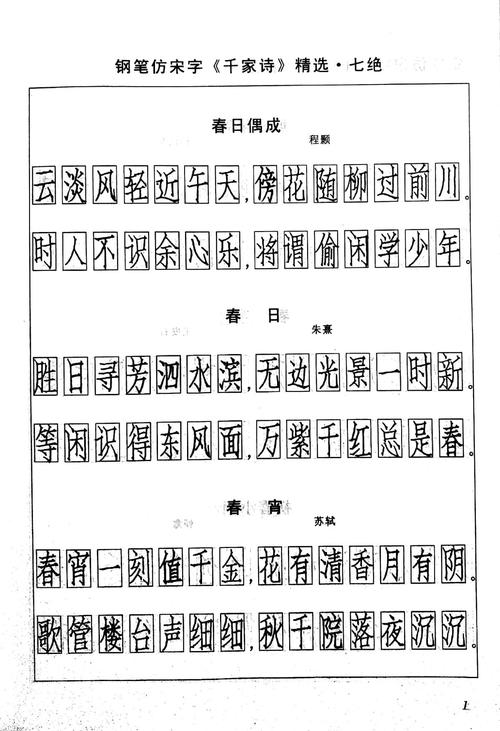 钢笔仿宋字《千家诗》精选·七绝
春日偶成
程颢
云淡风轻近午天,傍花随柳过前川。
时人不识余心乐,将谓偷闲学少年。
春 日
朱熹
胜日寻芳泗水滨,无边光景一时新。
等闲识得东风面,万紫千红总是春。
春 宵
苏轼
春宵一刻值千金,花有清香月有阴。
歌管楼台声细细,秋千院落夜沉沉。
1